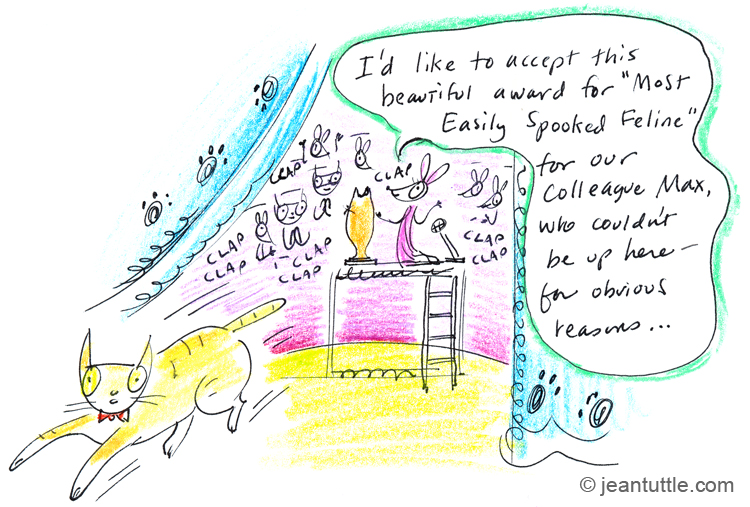 I'd like to accept this
beautiful award for "Most
Easily Spooked Feline"
for our
Colleague Max,
who couldn't
be up here –
for obvious
reasons...
CLAP
CLAP
CLAP
CLAP
CLAP
CLAP
CLAP
CLAP
© jeantuttle.com